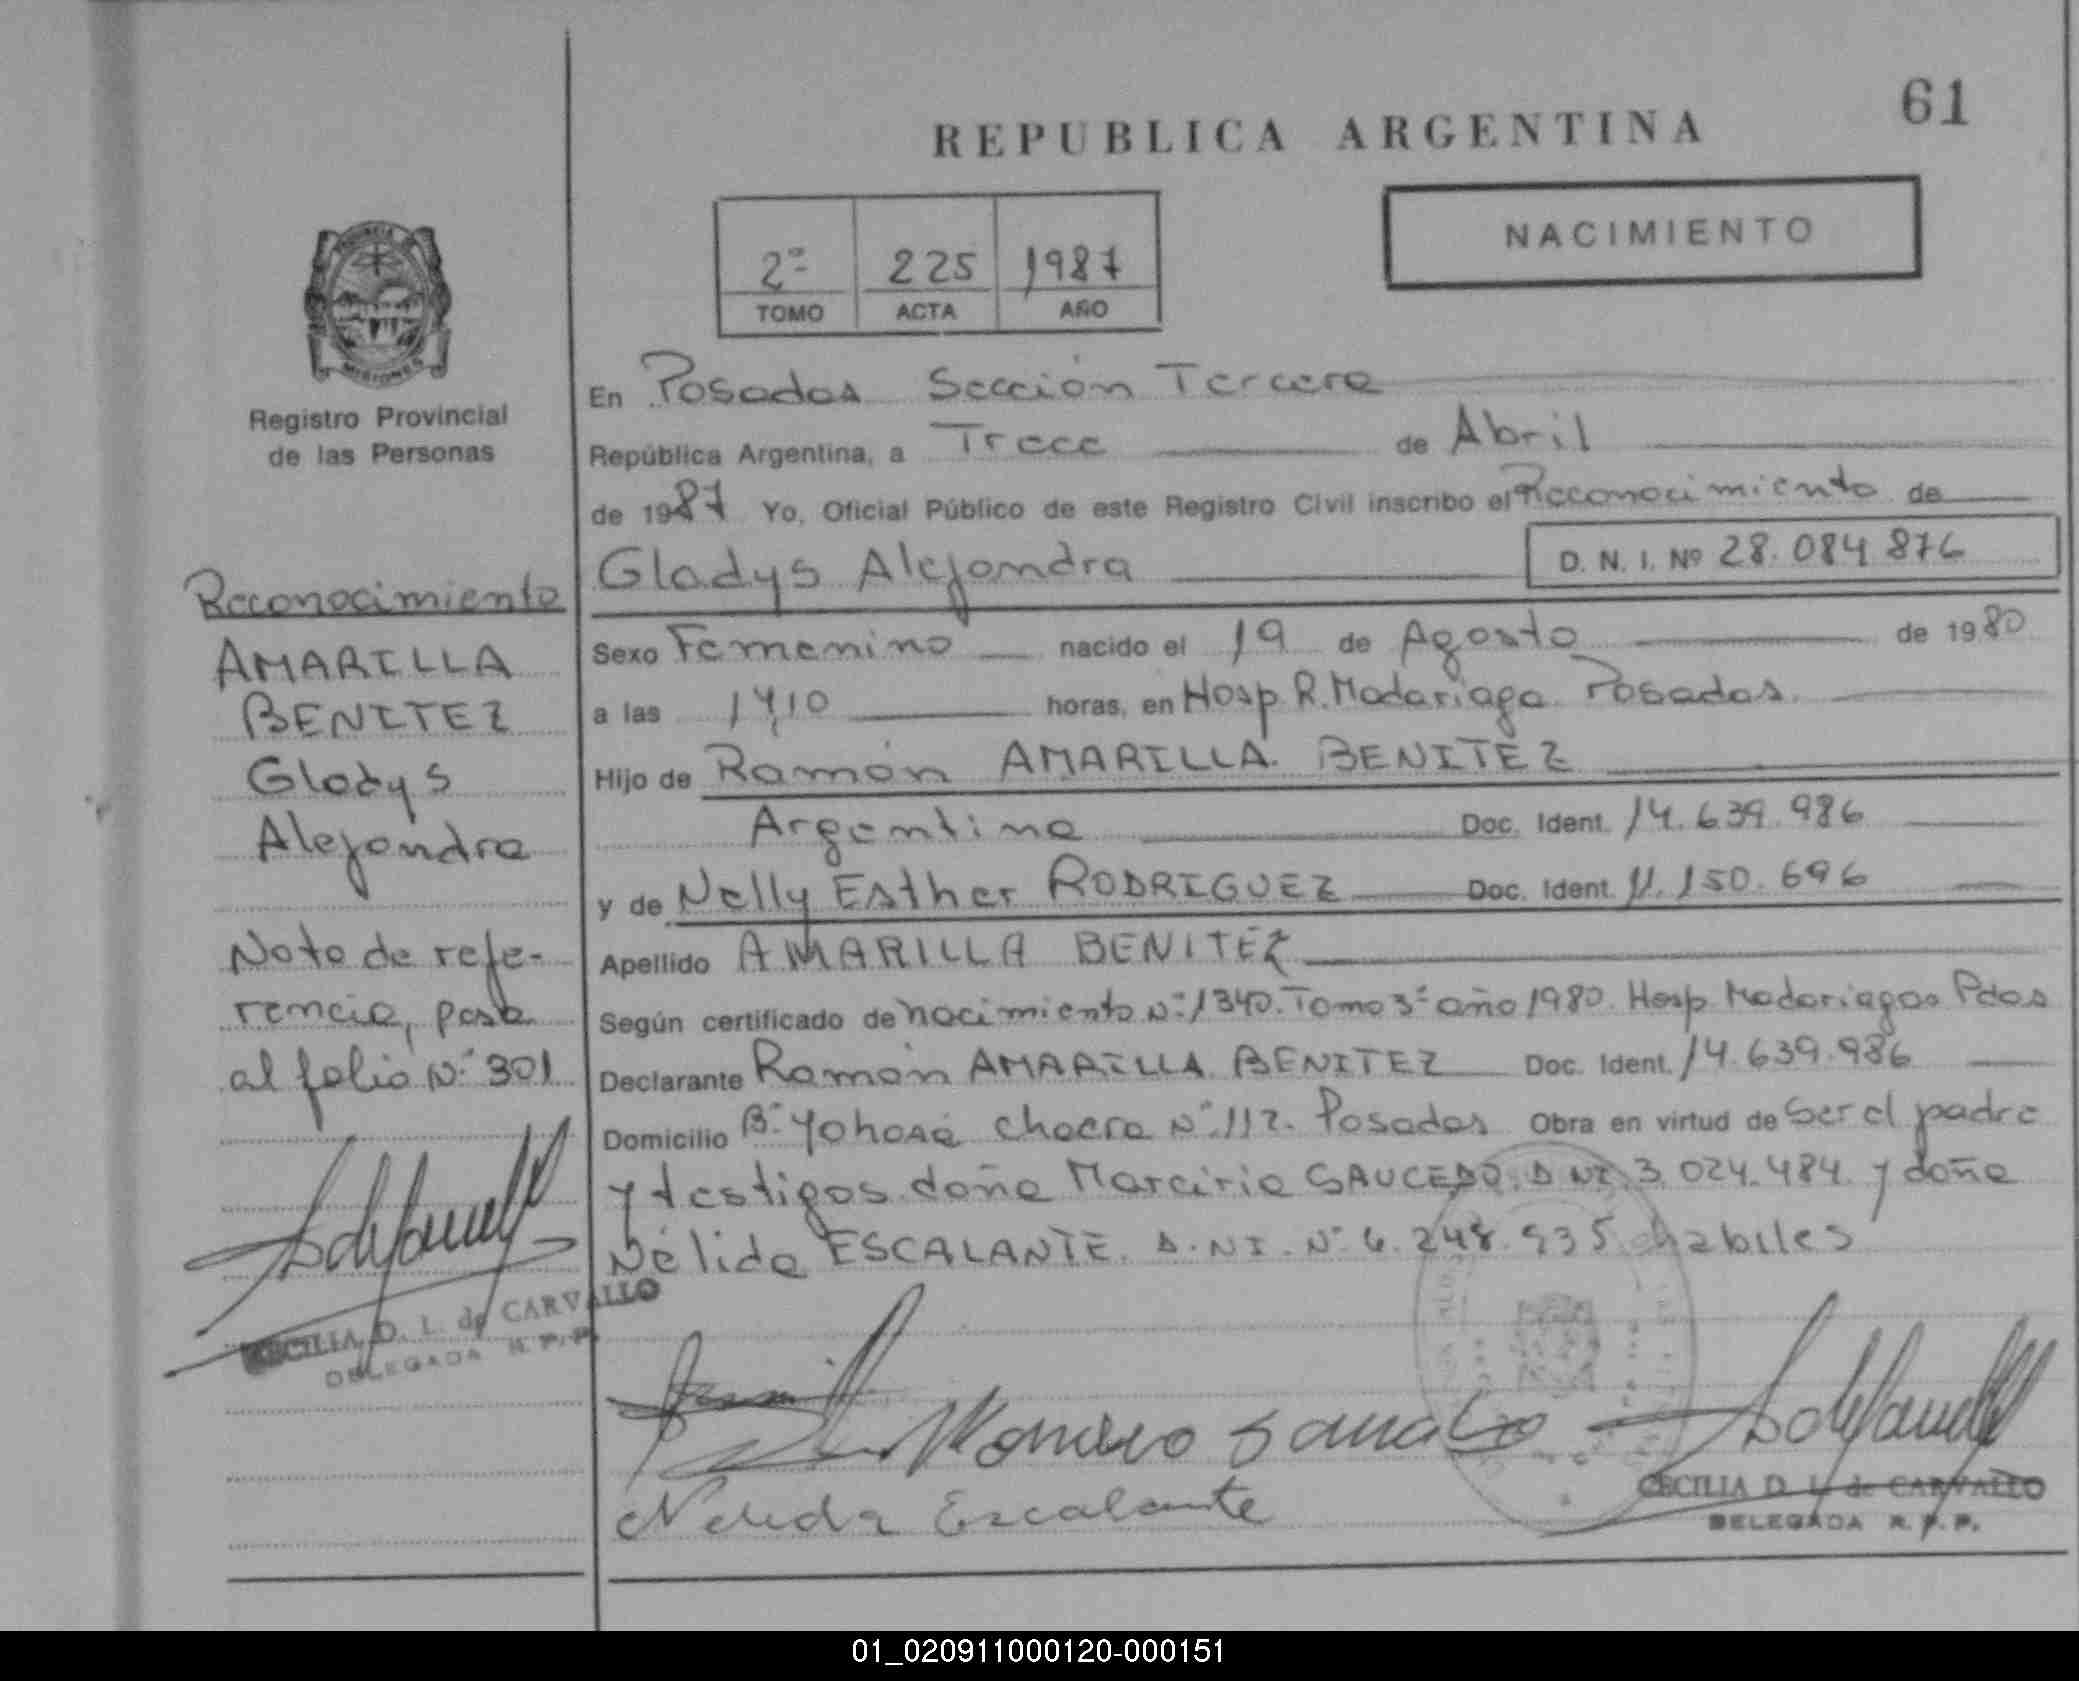 61
REPUBLICA ARGENTINA
NACIMIENTO
2º 225 1987
TOMO ACTA AÑO
PROVINCIA DE
MISIONES
Registro Provincial
de las Personas
Reconocimiento
AMARILLA
BENITEZ
Gladys
Alejandra
Nota de refe-
rencia, pasa
al folio Nº 301
CECILIA D. L. de CARVALLO
DELEGADA R. P. P.
En Posadas Sección Tercera
República Argentina, a Trece de Abril
de 1987 Yo, Oficial Público de este Registro Civil inscribo el Reconocimiento de
Gladys Alejandra D. N. I. Nº 28.084 876
Sexo Femenino nacido el 19 de Agosto de 1980
a las 14,10 horas, en Hosp R. Madariaga Posadas
Hijo de Ramón AMARILLA BENITEZ
Argentino Doc. Ident. 14.639.986
y de Nelly Esther RODRIGUEZ Doc. Ident. 11.150.696
Apellido AMARILLA BENITEZ
Según certificado de nacimiento Nº 1340. Tomo 3º año 1980. Hosp Madariagas Pdas
Declarante Ramón AMARILLA BENITEZ Doc. Ident. 14.639.986
Domicilio Bº Yohasá chacra Nº 112. Posadas Obra en virtud de Ser el padre
y testigos doña Marciria SAUCEDO. D NI. 3.024.484 y doña
Nélida ESCALANTE. D.NI. Nº 6.248.935 habiles
Nelida Escalante
CECILIA D. L. de CARVALLO
DELEGADA R. P. P.
01_020911000120-000151